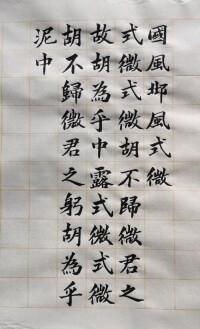 國風邶風式微
式微式微胡不歸微君之
故胡為乎中露式微式微
胡不歸微君之躬胡為乎
泥中